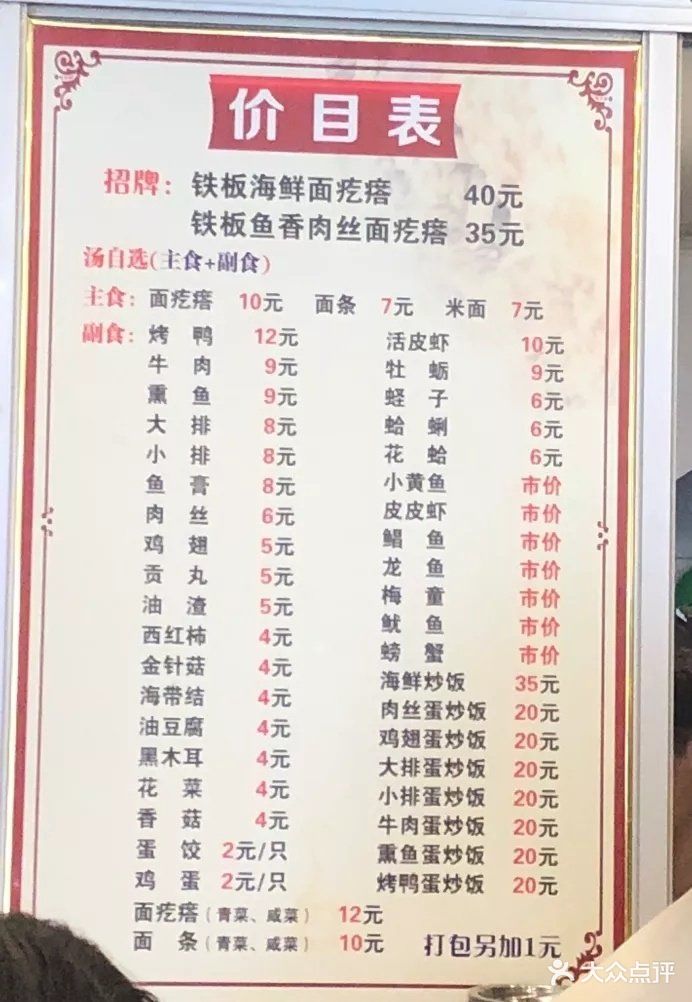 价目表
招牌：铁板海鲜面疙瘩 40元
铁板鱼香肉丝面疙瘩 35元
汤自选(主食+副食)
主食：面疙瘩 10元 面条 7元 米面 7元
副食：烤鸭 12元
牛肉 9元
熏鱼 9元
大排 8元
小排 8元
鱼膏 8元
肉丝 6元
鸡翅 5元
贡丸 5元
油渣 5元
西红柿 4元
金针菇 4元
海带结 4元
油豆腐 4元
黑木耳 4元
花菜 4元
香菇 4元
蛋饺 2元/只
鸡蛋 2元/只
活皮虾 10元
牡蛎 9元
蛏子 6元
蛤蜊 6元
花蛤 6元
小黄鱼 市价
皮皮虾 市价
鲳鱼 市价
龙鱼 市价
梅童 市价
鱿鱼 市价
螃蟹 市价
海鲜炒饭 35元
肉丝蛋炒饭 20元
鸡翅蛋炒饭 20元
大排蛋炒饭 20元
小排蛋炒饭 20元
牛肉蛋炒饭 20元
熏鱼蛋炒饭 20元
烤鸭蛋炒饭 20元
面疙瘩（青菜、咸菜） 12元
面条（青菜、咸菜） 10元
打包另加1元
大众点评